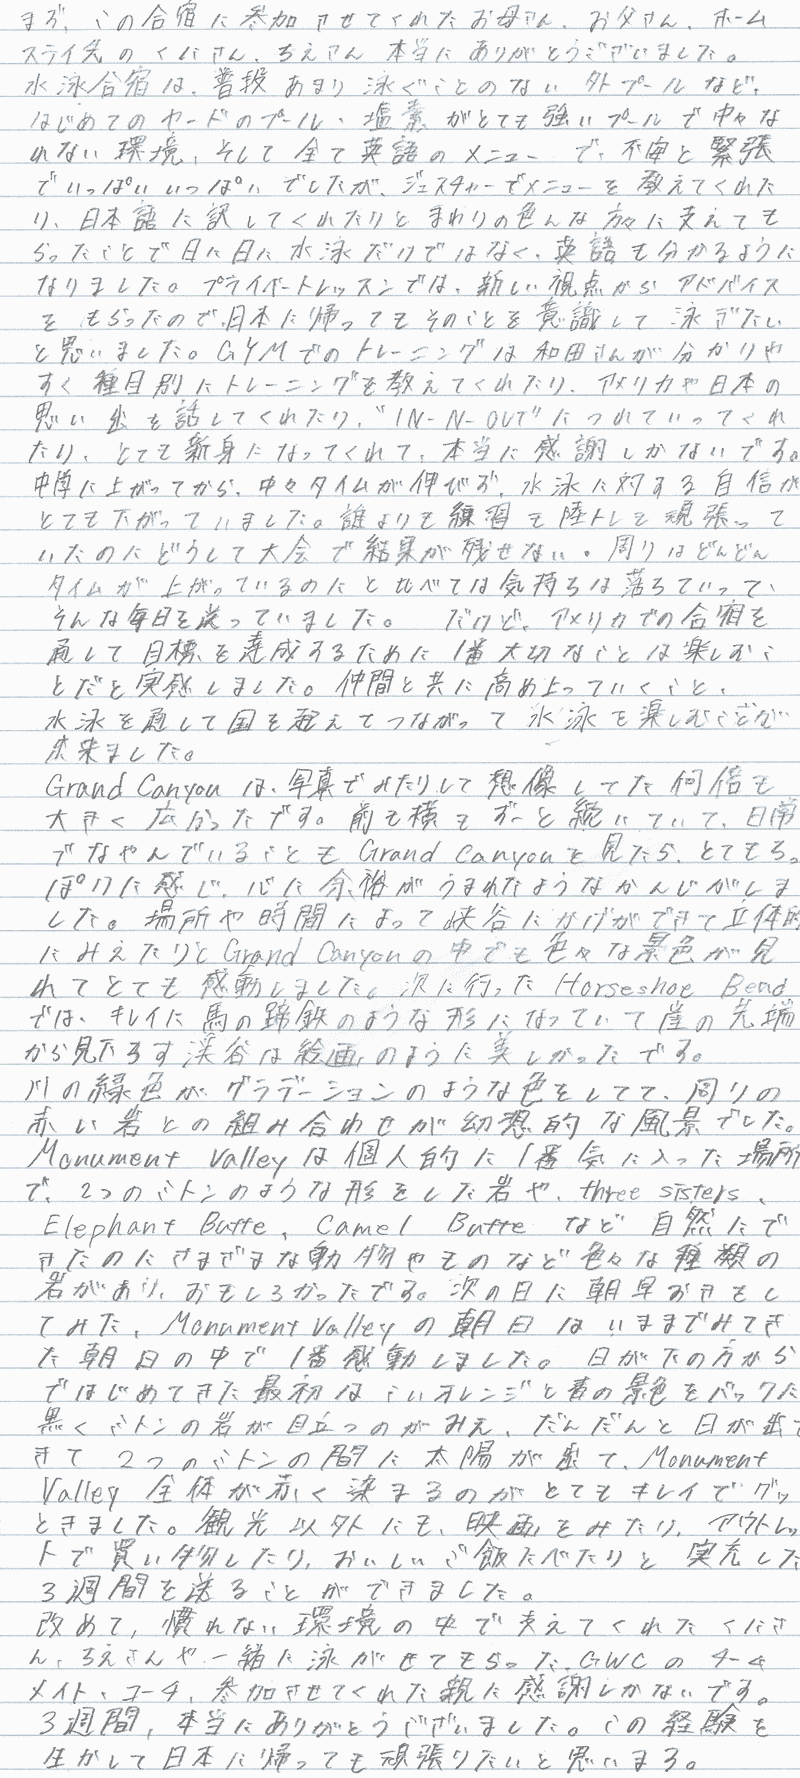 まず、この合宿に参加させてくれたお母さん、お父さん、ホーム
ステイ先のくにさん、ちえさん 本当にありがとうございました。
水泳合宿は、普段あまり泳ぐことのない外プールなど、
はじめてのヤードのプール、塩素がとても強いプールで中々な
れない環境、そして全て英語のメニューで、不安と緊張
でいっぱいいっぱいでしたが、ジェスチャーでメニューを教えてくれた
り、日本語に訳してくれたりとまわりの色んな方々に支えても
らったことで日に日に水泳だけではなく、英語も分かるように
なりました。プライベートレッスンでは、新しい視点からアドバイス
をもらったので、日本に帰ってもそのことを意識して泳ぎたい
と思いました。GYMでのトレーニングは和田さんが分かりや
すく種目別にトレーニングを教えてくれたり、アメリカや日本の
思い出を話してくれたり、"IN-N-OUT"につれていってくれ
たり、とても親身になってくれて、本当に感謝しかないです。
中学に上がってから、中々タイムが伸びず、水泳に対する自信が
とても下がっていました。誰よりも練習も陸トレも頑張って
いたのにどうして大会で結果が残せない。周りはどんどん
タイムが上がっているのにと比べては気持ちは落ちていって、
そんな毎日を送っていました。 だけど、アメリカでの合宿を
通して目標を達成するために1番大切なことは楽しむこ
とだと実感しました。仲間と共に高め合っていくこと、
水泳を通して国を超えてつながって水泳を楽しむことが
出来ました。
Grand Canyonは、写真でみたりして想像してた何倍も
大きく広かったです。前も横もずーと続いていて、日常
でなやんでいることもGrand Canyonを見たら、とてもちっ
ぽけに感じ、心に余裕がうまれたようなかんじがしま
した。場所や時間によって峡谷にかげができて立体的
にみえたりとGrand Canyonの中でも色々な景色が見
れてとても感動しました。次に行ったHorseshoe Bend
では、キレイに馬の蹄鉄のような形になっていて崖の先端
から見下ろす渓谷は絵画のように美しかったです。
川の緑色がグラデーションのような色をしてて、周りの
赤い岩との組み合わせが幻想的な風景でした。
Monument Valleyは個人的に1番気に入った場所
で、2つのミトンのような形をした岩や、three sisters、
Elephant Butte、Camel Butteなど自然にで
きたのにさまざまな動物やものなど色々な種類の
岩があり、おもしろかったです。次の日に朝早おきをし
てみた、Monument Valleyの朝日はいままでみてき
た朝日の中で1番感動しました。日が下の方から
ではじめてきた最初はこいオレンジと青の景色をバックに
黒くミトンの岩が目立つのがみえ、だんだんと日が出て
きて2つのミトンの間に太陽が出て、Monument
Valley全体が赤く染まるのがとてもキレイでグッ
ときました。観光以外にも、映画をみたり、アウトレッ
トで買い物したり、おいしいご飯たべたりと実充した
3週間を送ることができました。
改めて、慣れない環境の中で支えてくれたくにさ
ん、ちえさんや一緒に泳がせてもらったGWCのチーム
メイト、コーチ、参加させてくれた親に感謝しかないです。
3週間、本当にありがとうございました。この経験を
生かして日本に帰っても頑張りたいと思います。